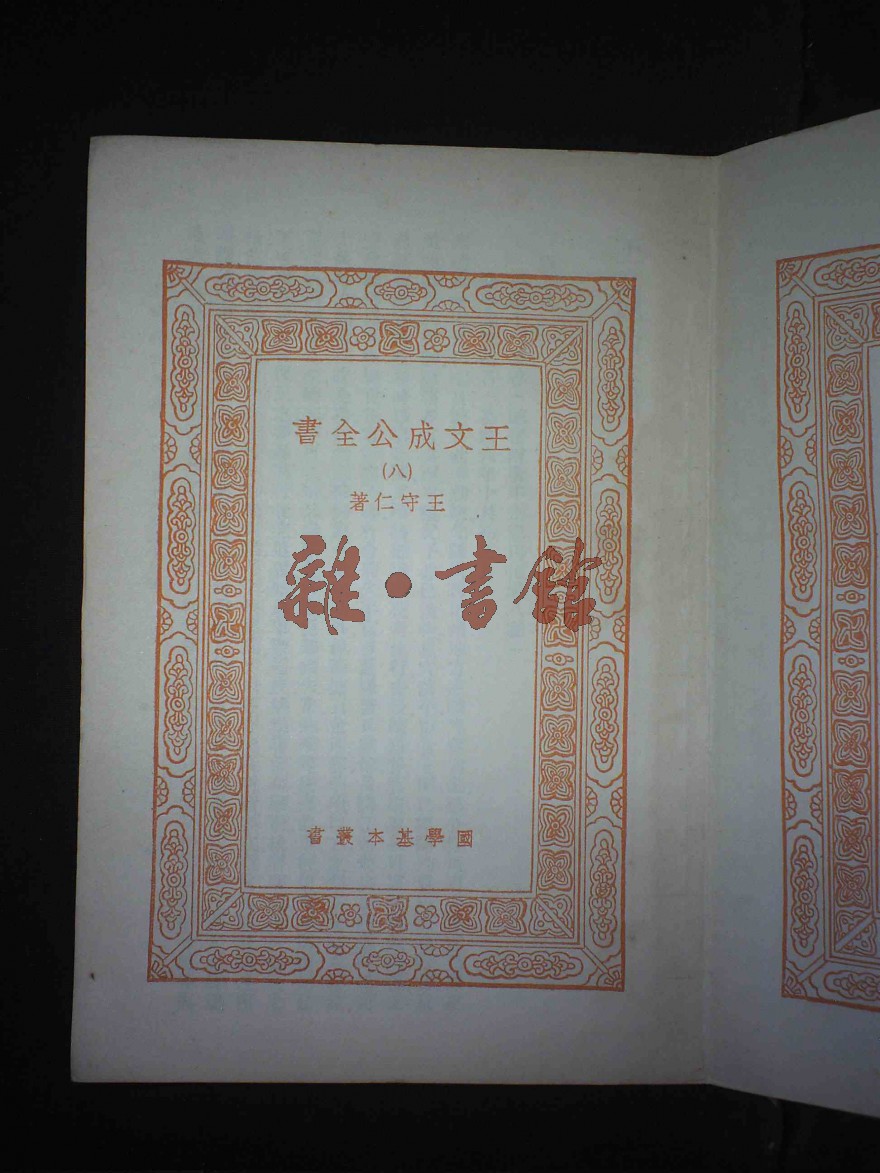 王文成公全書
(八)
王守仁著
雜·書館
國學基本叢書